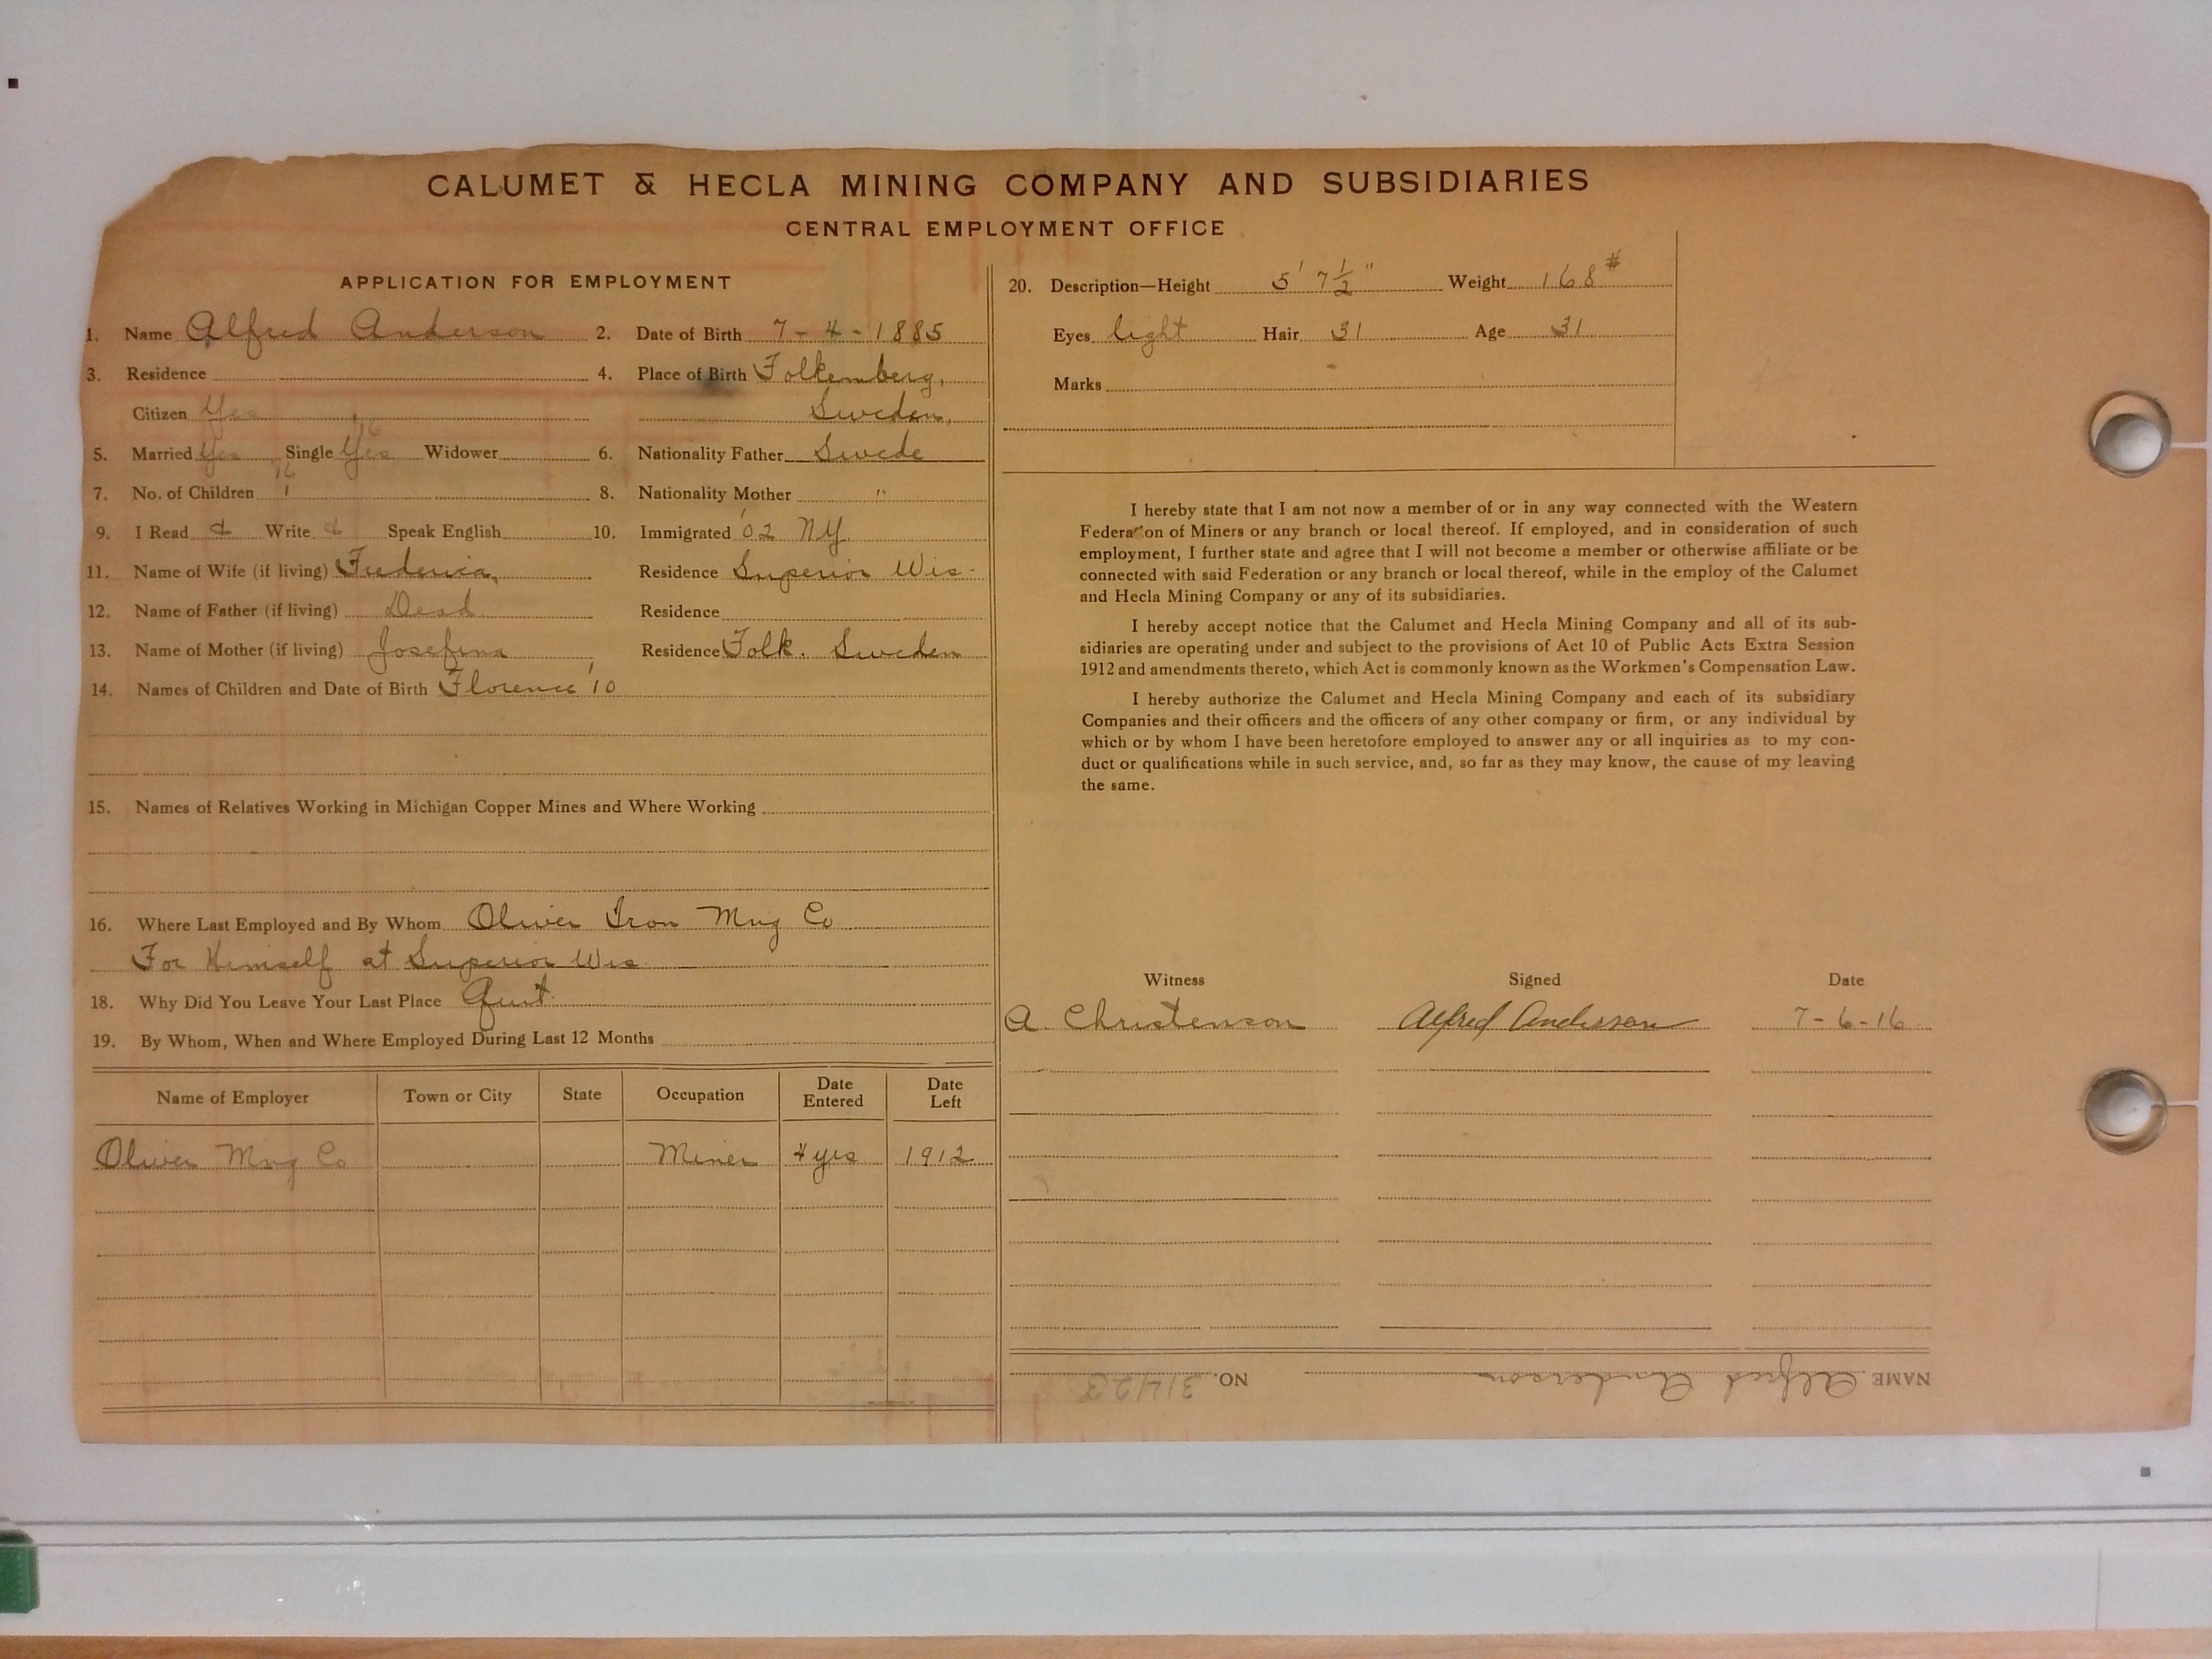 CALUMET & HECLA MINING COMPANY AND SUBSIDIARIES
CENTRAL EMPLOYMENT OFFICE
APPLICATION FOR EMPLOYMENT
1. Name Alfred Anderson 2. Date of Birth 7-4-1885
3. Residence 4. Place of Birth Folkemberg,
Citizen Yes Sweden,
5. Married Yes Single Yes Widower 6. Nationality Father Swede
16
16
7. No. of Children 1 8. Nationality Mother "
9. I Read & Write & Speak English 10. Immigrated '02 NY
11. Name of Wife (if living) Frederica, Residence Superior Wis-
12. Name of Father (if living) Dead Residence
13. Name of Mother (if living) Josefina Residence Folk. Sweden
14. Names of Children and Date of Birth Florence '10
15. Names of Relatives Working in Michigan Copper Mines and Where Working
16. Where Last Employed and By Whom Oliver Iron Mng Co
For Himself at Superior Wis
18. Why Did You Leave Your Last Place Quit.
19. By Whom, When and Where Employed During Last 12 Months
Name of Employer Town or City State Occupation Date Entered Date Left
Oliver Mng Co Miner 4 yrs 1912
20. Description—Height 5' 7½" Weight 168#
Eyes light Hair 31 Age 31
Marks
I hereby state that I am not now a member of or in any way connected with the Western
Federation of Miners or any branch or local thereof. If employed, and in consideration of such
employment, I further state and agree that I will not become a member or otherwise affiliate or be
connected with said Federation or any branch or local thereof, while in the employ of the Calumet
and Hecla Mining Company or any of its subsidiaries.
I hereby accept notice that the Calumet and Hecla Mining Company and all of its sub-
sidiaries are operating under and subject to the provisions of Act 10 of Public Acts Extra Session
1912 and amendments thereto, which Act is commonly known as the Workmen's Compensation Law.
I hereby authorize the Calumet and Hecla Mining Company and each of its subsidiary
Companies and their officers and the officers of any other company or firm, or any individual by
which or by whom I have been heretofore employed to answer any or all inquiries as to my con-
duct or qualifications while in such service, and, so far as they may know, the cause of my leaving
the same.
Witness Signed Date
A. Christenson Alfred Anderson 7-6-16
NAME Alfred Anderson NO. 31423